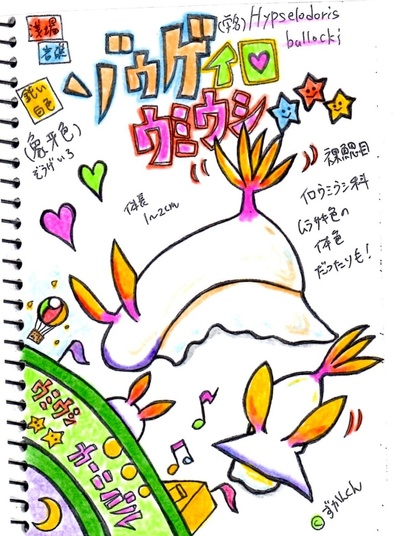 浅場
岩礁
鈍い
白色
(象牙色)
ぞうげいろ
(学名)Hypselodoris
bullocki
ゾウゲイロ
ウミウシ
体長
1~2cm
裸鰓目
イロウミウシ科
ムラサキ色の
体色
だったりも!
ウミウシ
カーニバル
©ずかんくん